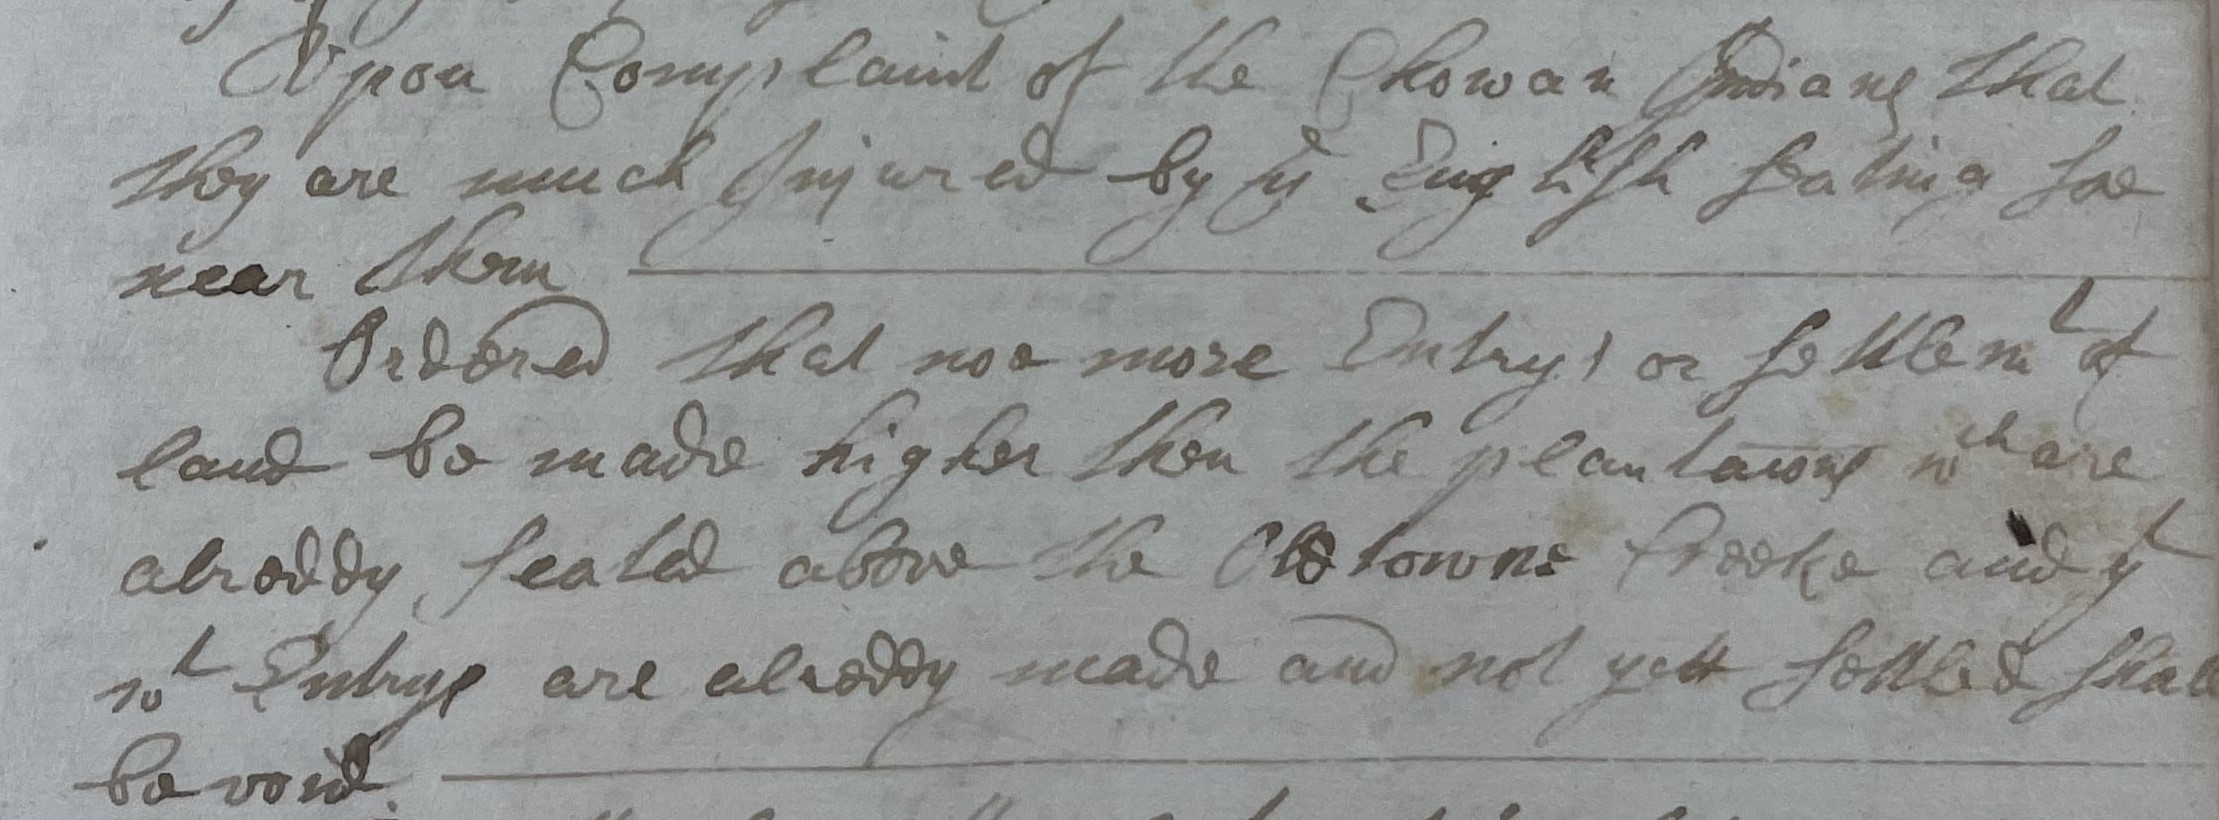 Upon Complaint of the Chowan Indians that
they are much Injured by ye English seating soe
near them
Ordered that noe more Entrys or settlemt of
land be made higher then the plantacons wch are
alreddy seated above the Old towne Creeke and yt
wt Entrys are alreddy made and not yett settled shall
be void.